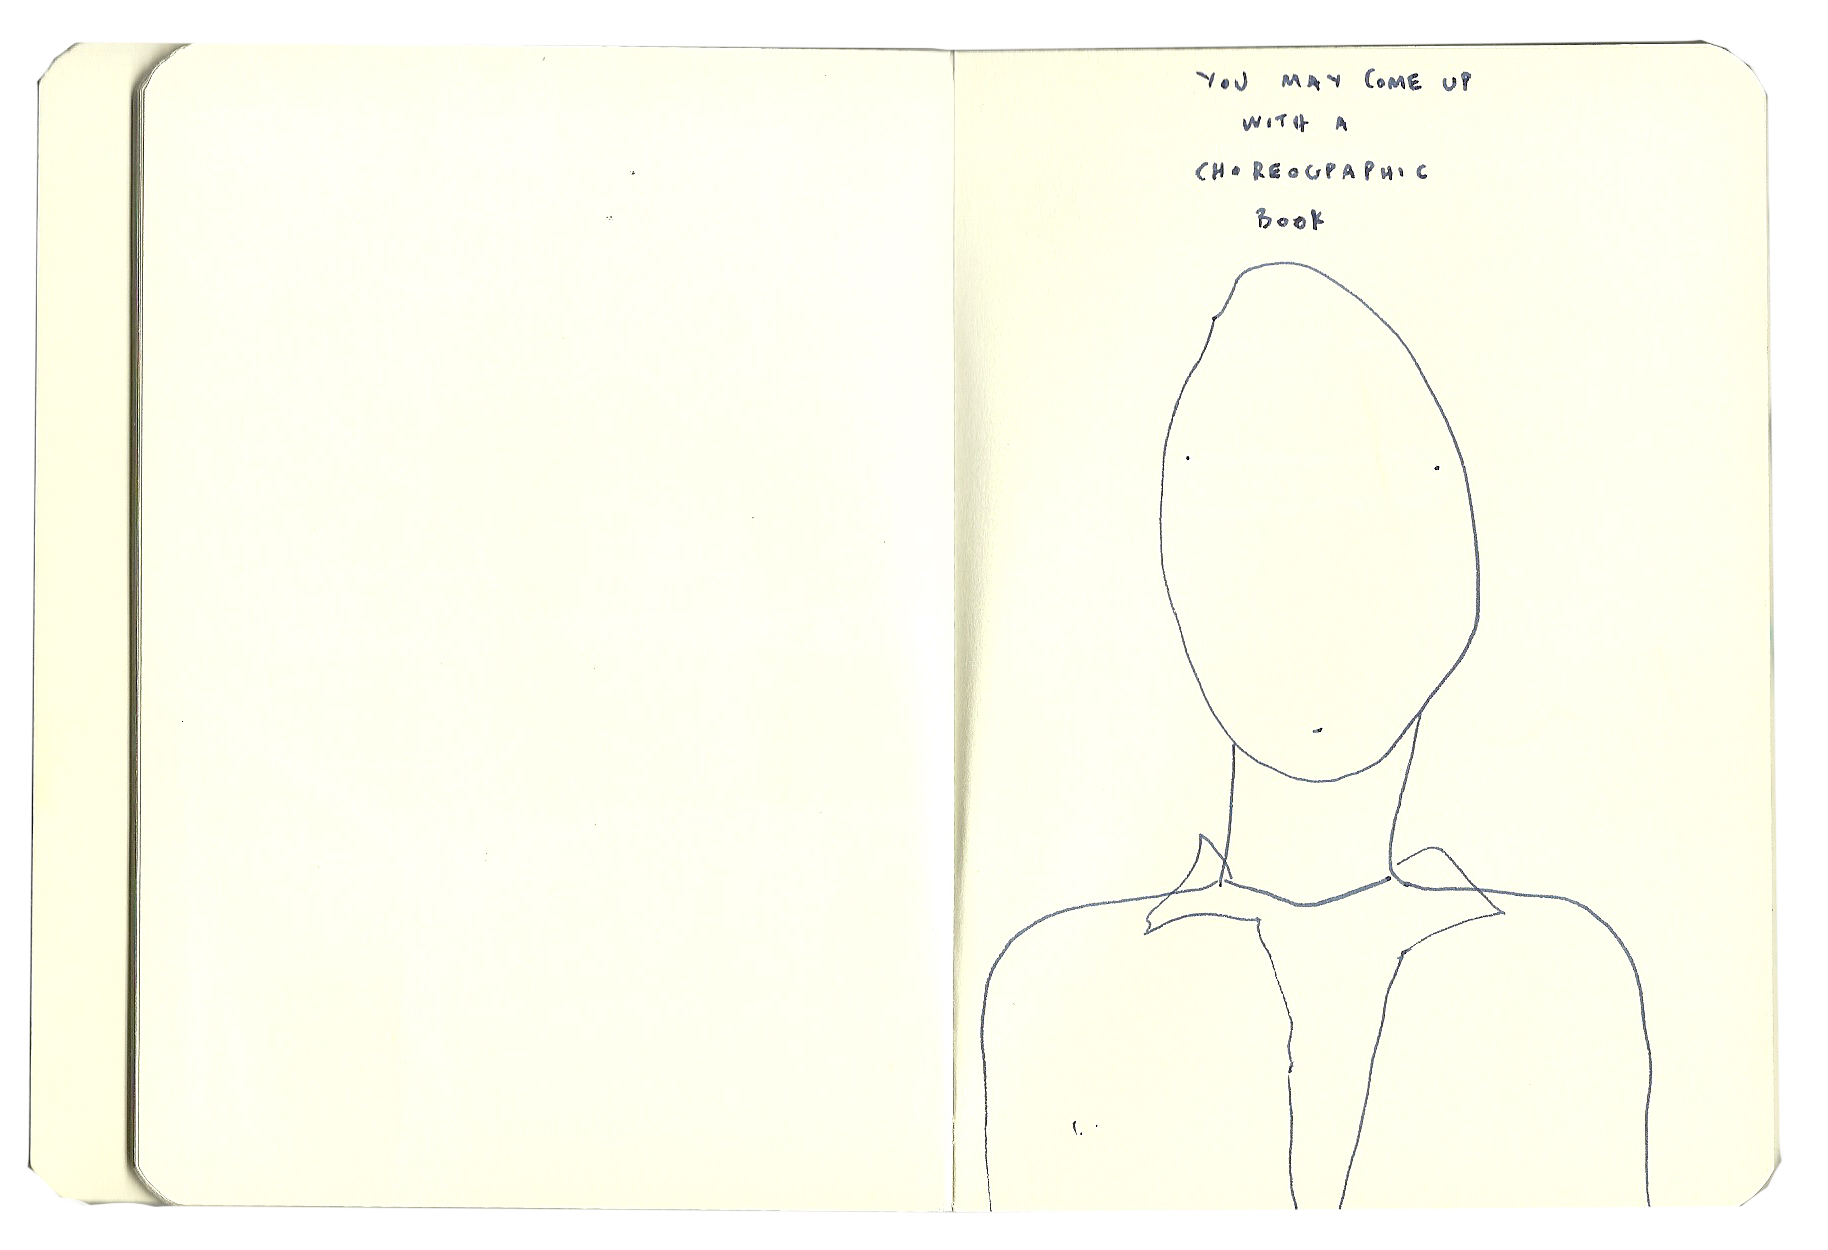 YOU MAY COME UP
WITH A
CHOREOGRAPHIC
BOOK